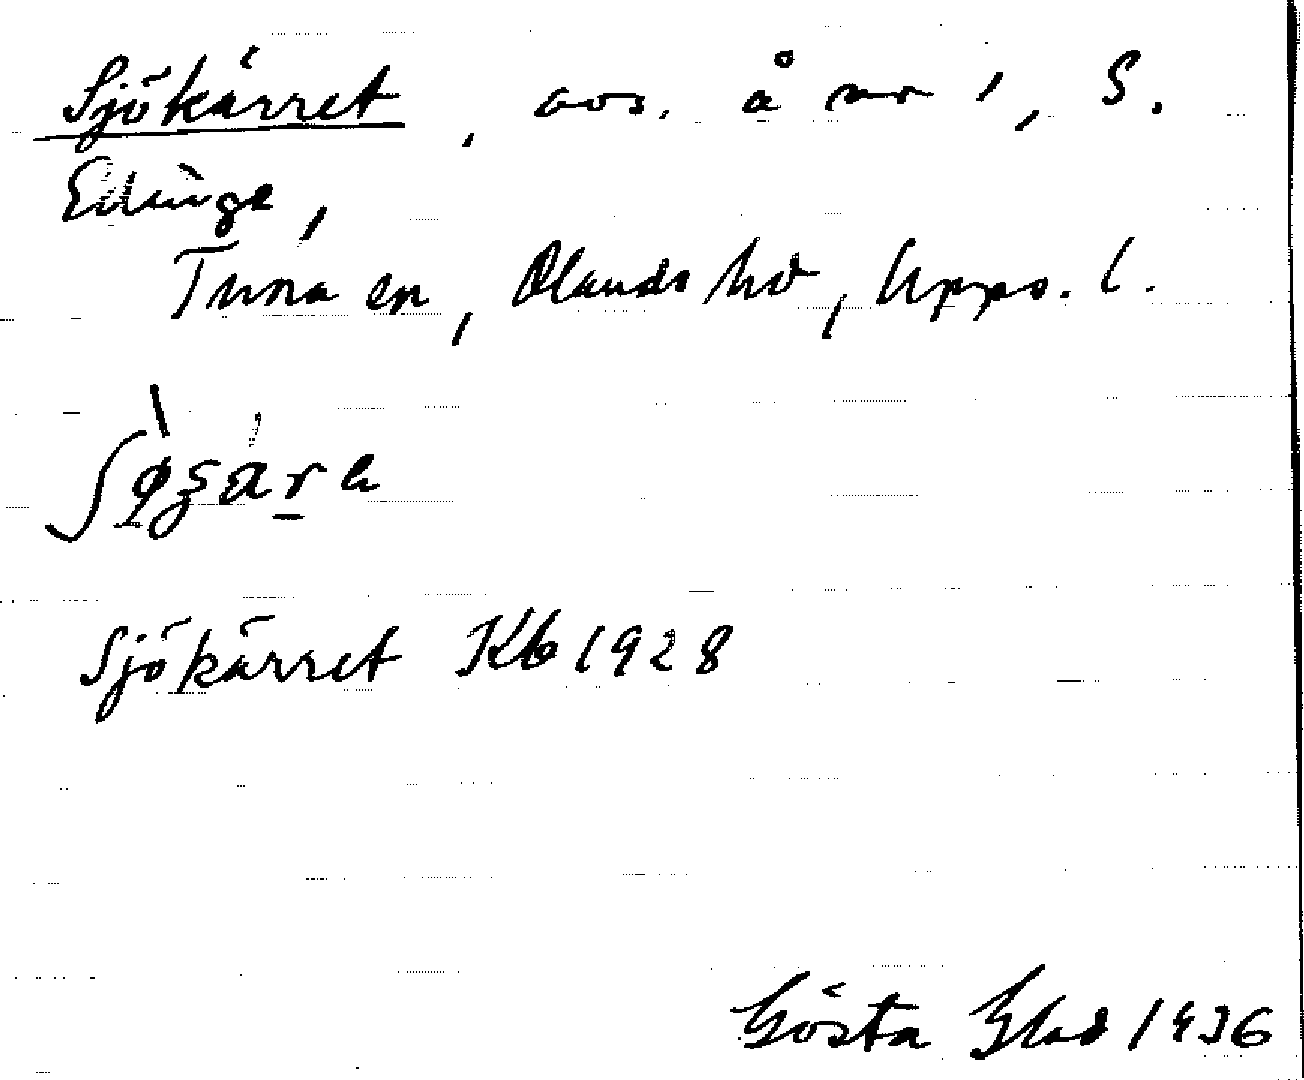 Sjökärret, avs. å nr 1, S.
Edinge,
Tuna sn, Olands hd, Upps. l.
Sjökärret Kb 1928
Gösta Blad 1936